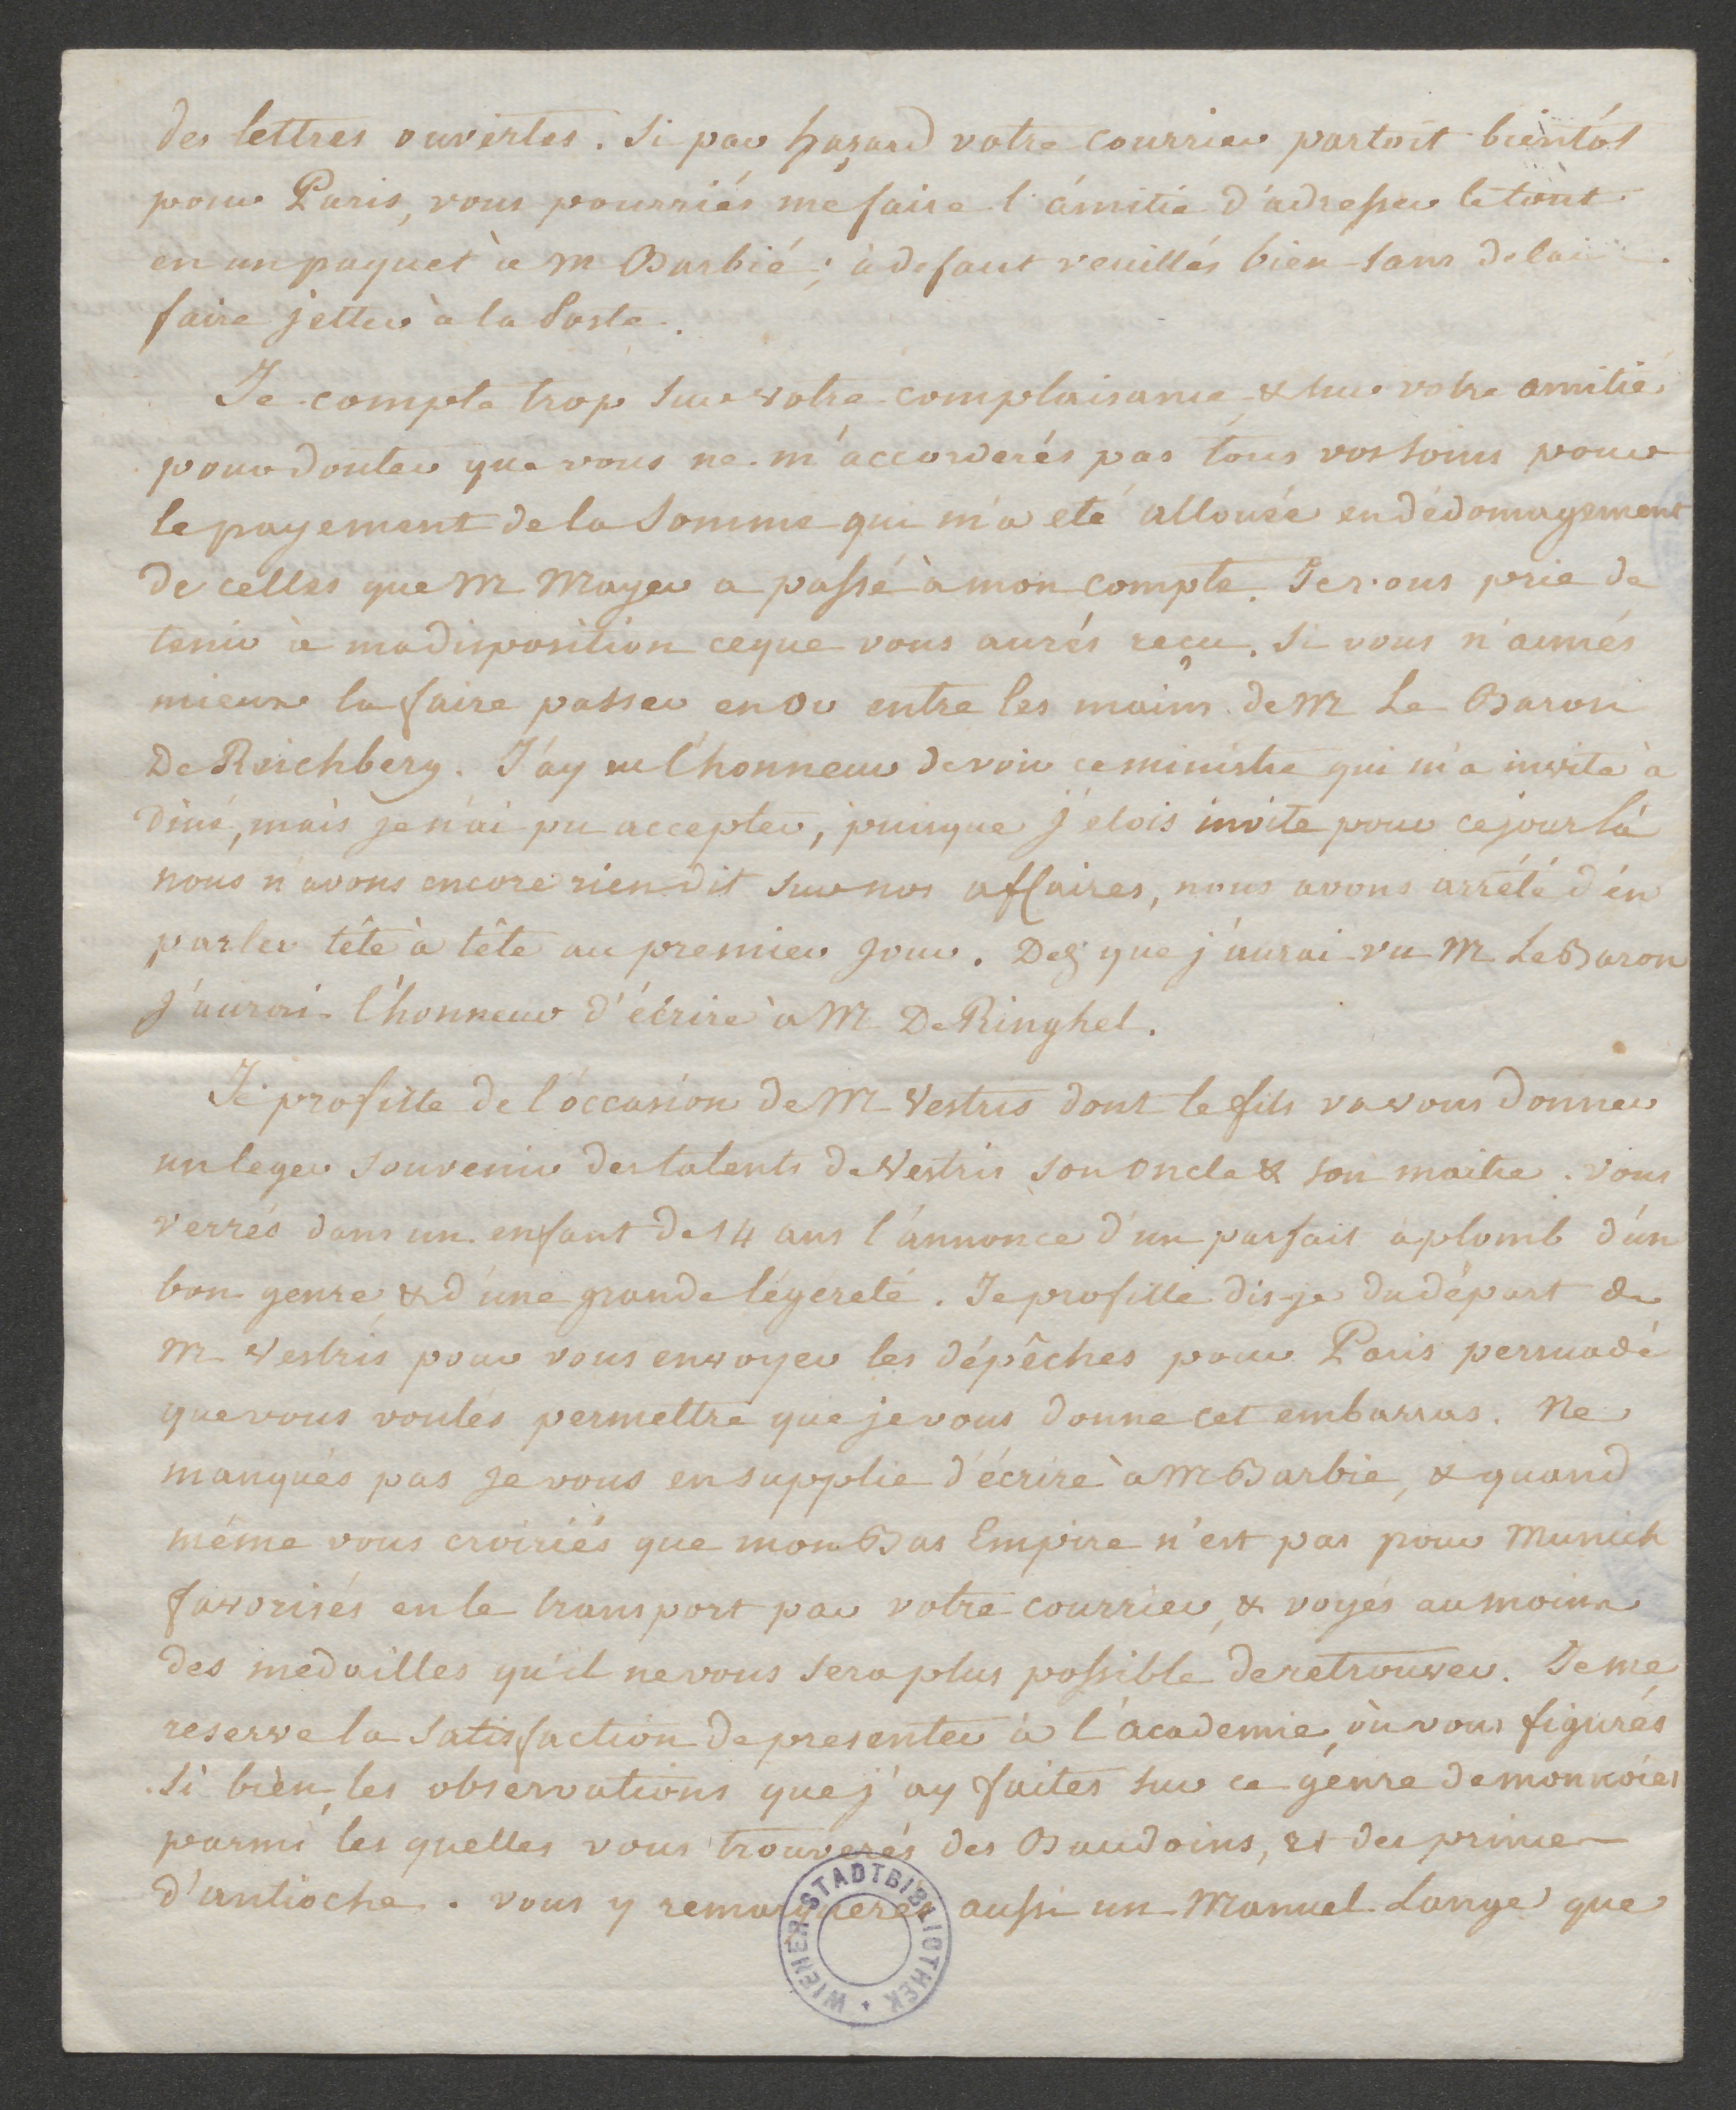 des lettres ouvertes. Si par hazard votre courrier partoit bientôt
pour Paris, vous pourriés me faire l'amitié d'adresser le tout
en un paquet à M Barbié; à defaut veuillés bien sans delai
faire jetter à la Poste.
Je compte trop sur votre complaisance & sur votre amitié
pour douter que vous ne m'accorderés pas tous vos soins pour
le payement de la Somme qui m'a eté allouée en dédomagement
de celles que M Mayer a passé à mon compte. Je vous prie de
tenir à ma disposition ce que vous aurés reçu. Si vous n'aimés
mieux la faire passer en or entre les mains de M Le Baron
De Reichberg. J'ay eu l'honneur de voir ce ministre qui m'a invité à
diné, mais je n'ai pu accepter, puisque j'etois invité pour ce jour là
nous n'avons encore rien dit sur nos affaires, nous avons arrêté d'en
parler tête à tête au premier jour. Des que j'aurai vu M Le Baron
j'aurai l'honneur d'écrire à M De Ringhel.
Je profitte de l'occasion de M Vestris dont le fils va vous donner
un leger souvenir des talents de Vestris son oncle & son maitre. vous
verrés dans un enfant de 14 ans l'annonce d'un parfait aplomb d'un
bon genre, & d'une grande légéreté. Je profitte dis-je du départ de
M Vestris pour vous envoyer les dépêches pour Paris persuadé
que vous voulés permettre que je vous donne cet embarras. Ne
manqués pas je vous en supplie d'écrire à M Barbié, & quand
même vous croiriés que mon Bas Empire n'est pas pour Munich
favorisés en le transport par votre courrier, & voyés au moins
des medailles qu'il ne vous sera plus possible de retrouver. Je me
reserve la satisfaction de presenter à l'academie, où vous figurés
si bien, les observations que j'ay faites sur ce genre de monnoies
parmi les quelles vous trouverés des Baudoins, et des princes
d'antioche. vous y remarquerés aussi un Manuel Lange que
WIENER STADTBIBLIOTHEK